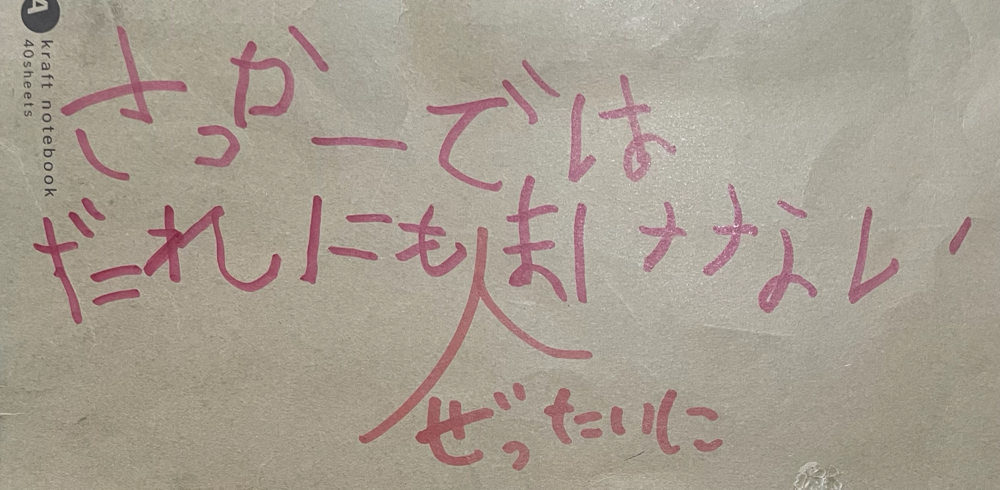 A
kraft notebook
40sheets
さっかーでは
だれにもまけない
ぜったいに